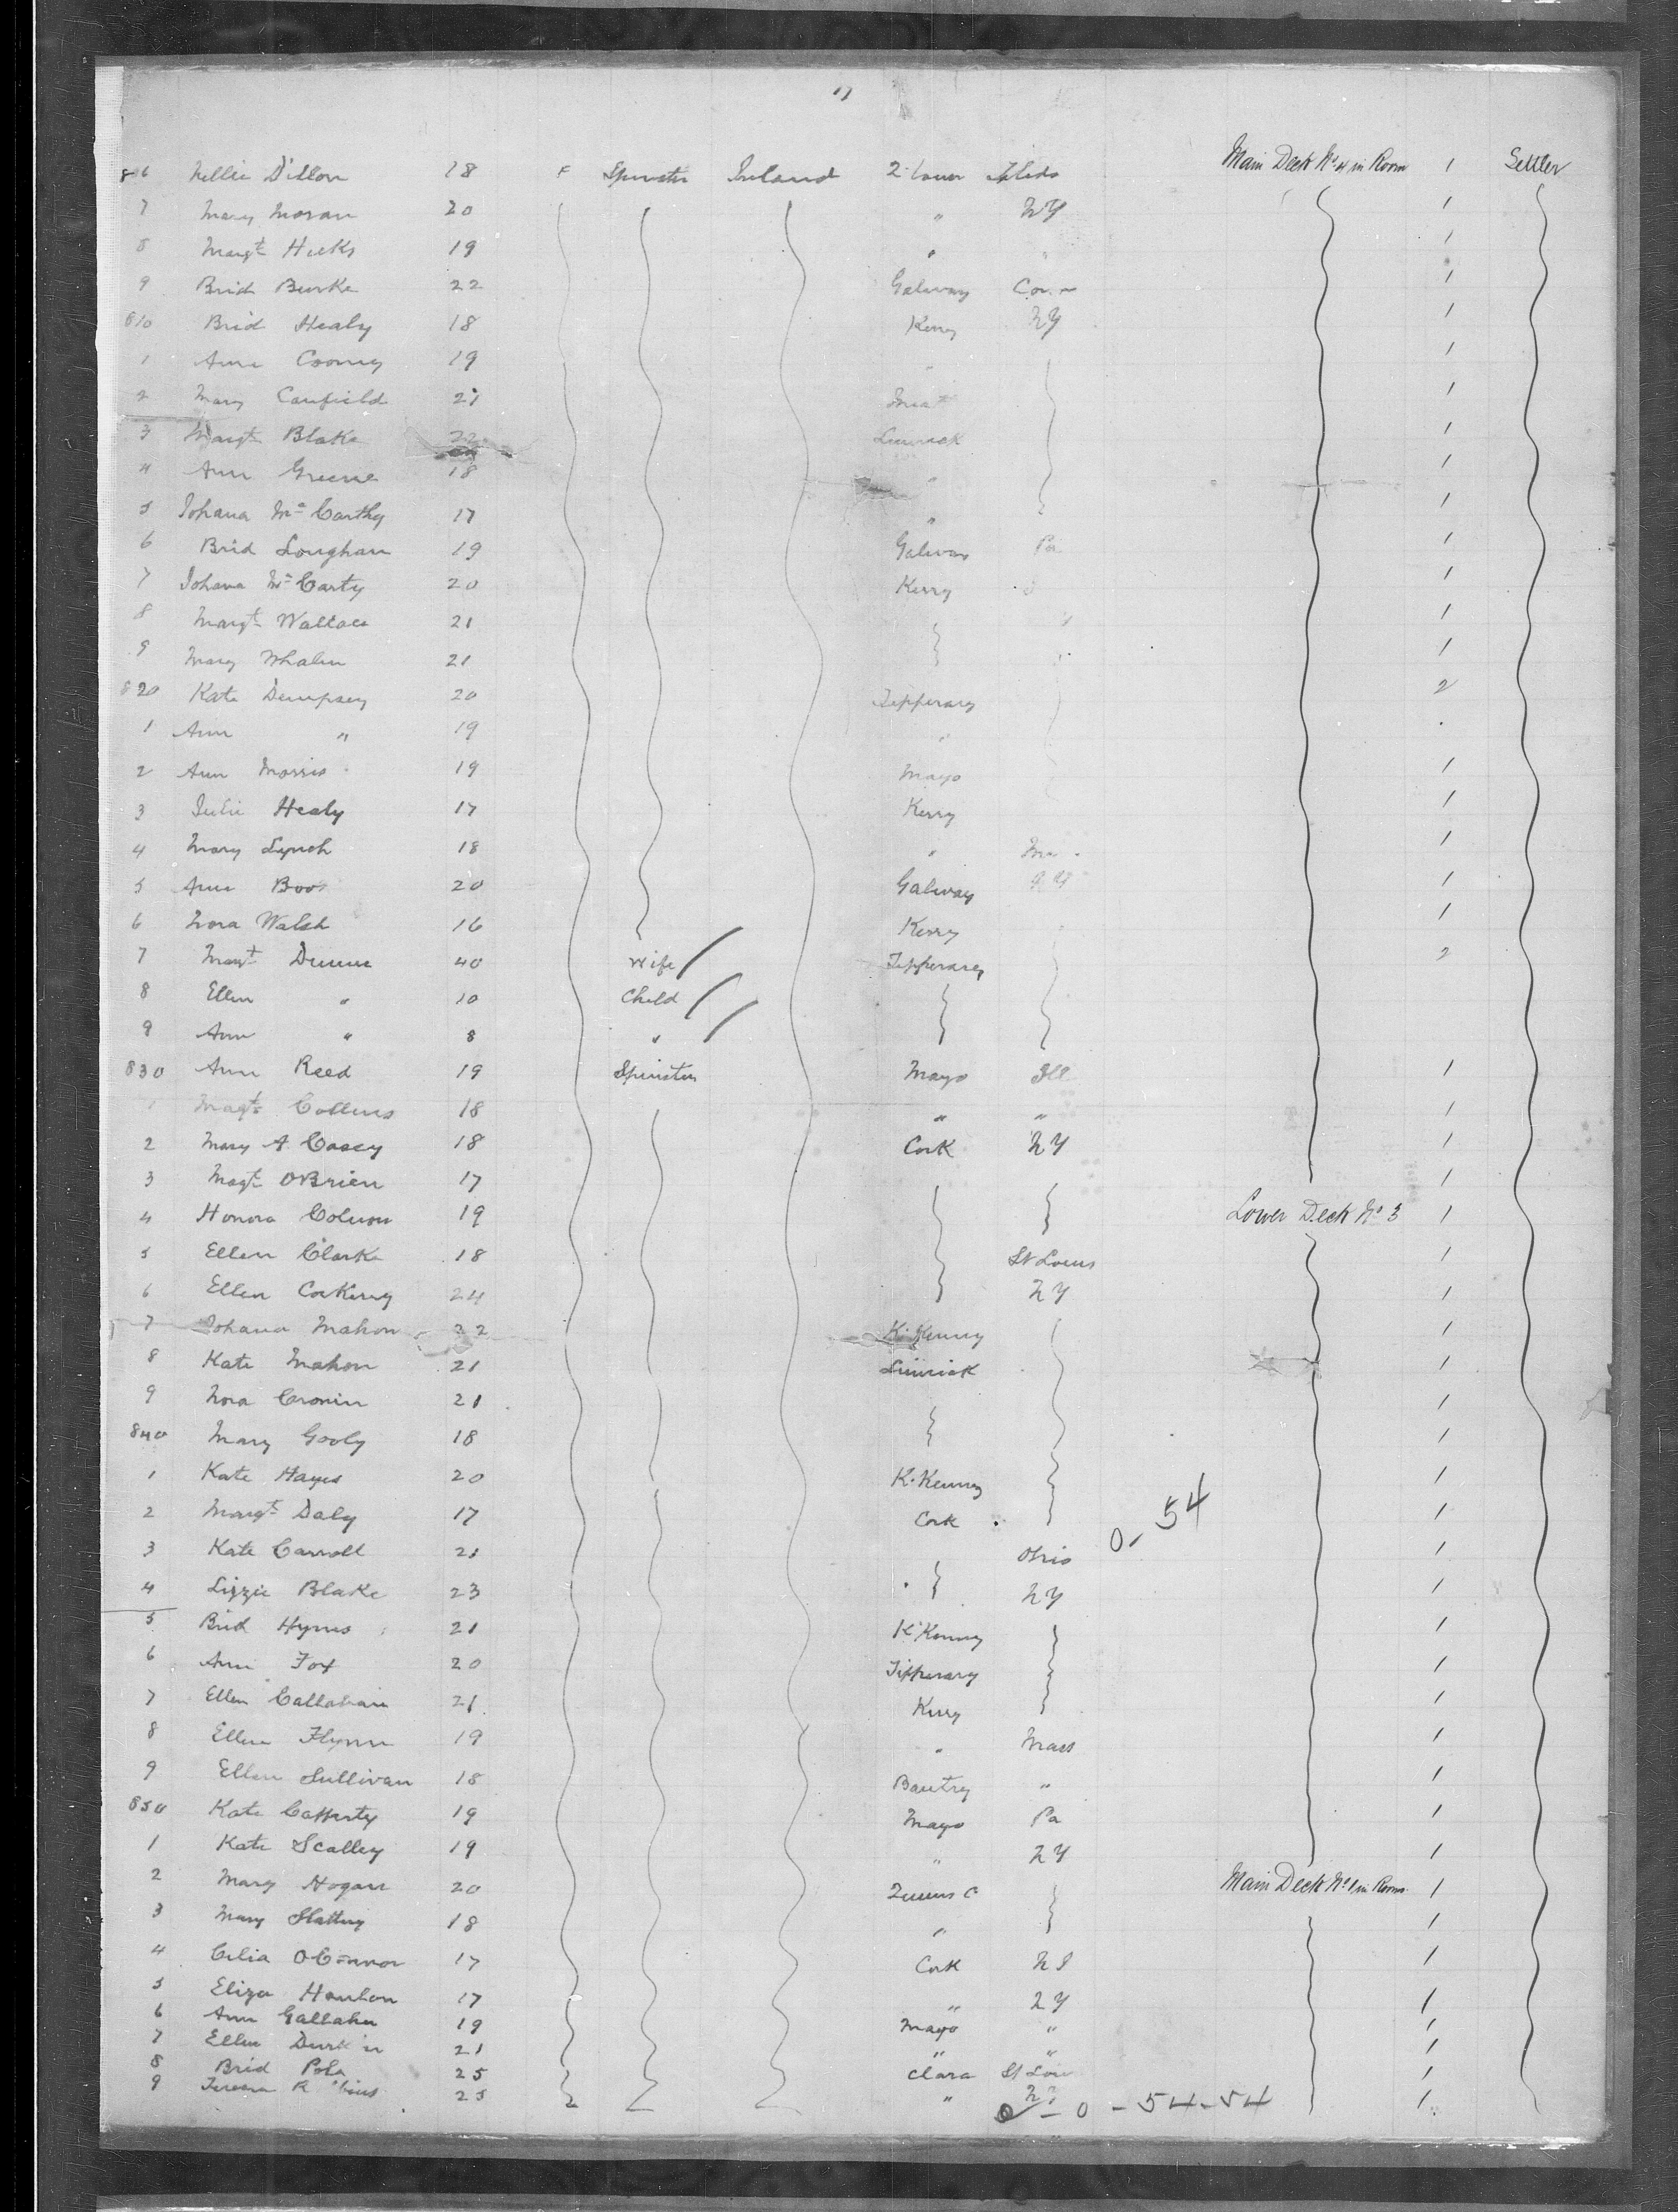 Nellie Dillon 18 F Spinster Ireland Main Deck No. 4 in Room 1 Settler
7 Mary Moran 20 " NY 1
8 Margt Hicks 19 " " 1
9 Brid Burke 22 Galway Conn 1
810 Brid Healy 18 Kerry NY 1
1 Ann Cooney 19 " 1
2 Mary Canfield 21 1
3 Margt Blake 22 Limrick 1
4 Ann Greene 18 " 1
5 Johana Mc Carthy 17 " 1
6 Brid Loughan 19 Galway Pa 1
7 Johana Mc Carty 20 Kerry 1
8 Margt Wallace 21 1
9 Mary Whalen 21 1
820 Kate Dempsey 20 Tipperary 2
1 Ann " 19 "
2 Ann Morris 19 Mayo 1
3 Julie Healy 17 Kerry 1
4 Mary Lynch 18 " 1
5 Ann 20 Galway NY 1
6 Nora Walsh 16 Kerry 1
7 Margt Dunne 40 Wife Tipperary 2
8 Ellen " 10 Child
9 Ann " 8 "
830 Ann Reed 19 Spinster Mayo Ill 1
1 Magt Collins 18 " " 1
2 Mary A Casey 18 Cork NY 1
3 Magt OBrien 17 1
4 Honora 19 Lower Deck No 3 1
5 Ellen Clarke 18 St Louis 1
6 Ellen Corkerey 24 NY 1
7 Johana Mahon 22 K. Kenny 1
8 Kate Mahon 21 Limrick 1
9 Nora Cronin 21 1
840 Mary Gooly 18 1
1 Kate Hayes 20 K. Kenny 1
2 Margt Daly 17 Cork 0-54 1
3 Kate Carroll 21 Ohio 1
4 Lizzie Blake 23 NY 1
5 Brid Hynes 21 K. Kenny 1
6 Ann Fox 20 Tipperary 1
7 Ellen Callahan 21 Kerry 1
8 Ellen Flynn 19 " Mass 1
9 Ellen Sullivan 18 Bantry " 1
850 Kate Cafferty 19 Mayo Pa 1
1 Kate Scalley 19 " NY 1
2 Mary Hogan 20 Queens C Main Deck No 1 in Room 1
3 Mary Slattery 18 " 1
4 Celia OConnor 17 Cork NJ 1
5 Eliza Hanlon 17 " NY 1
6 Ann Gallaher 19 Mayo " 1
7 Ellen Durkin 21 " " 1
8 Brid 25 Clara St Lou 1
9 Teresa 25 " 1
0-0-54-54